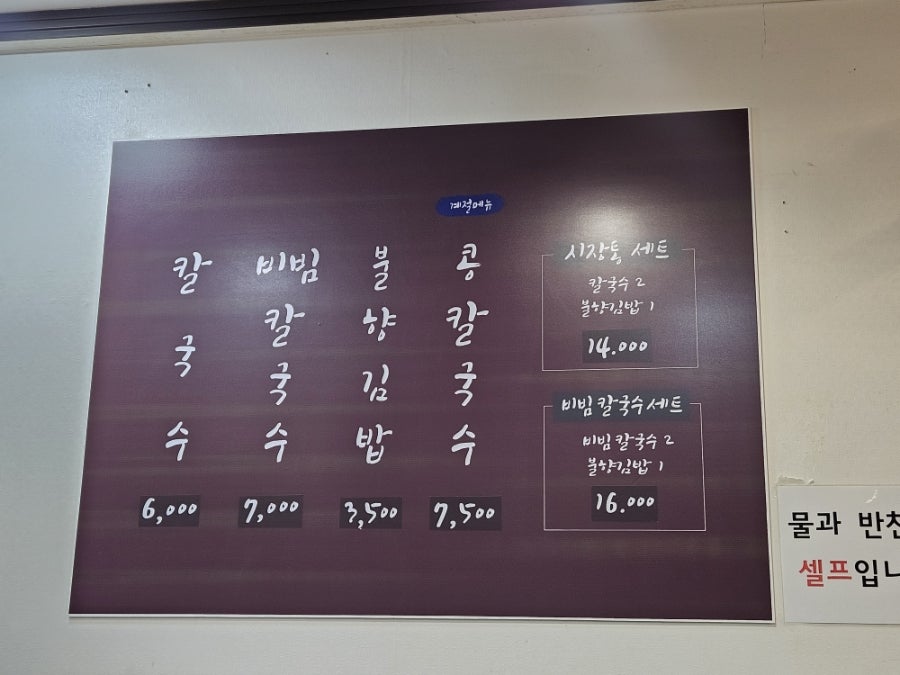 계절메뉴
칼국수
6,000
비빔칼국수
7,000
불향김밥
3,500
콩칼국수
7,500
시장통 세트
칼국수 2
불향김밥 1
14.000
비빔칼국수세트
비빔칼국수 2
불향김밥 1
16.000
물과 반찬
셀프입니